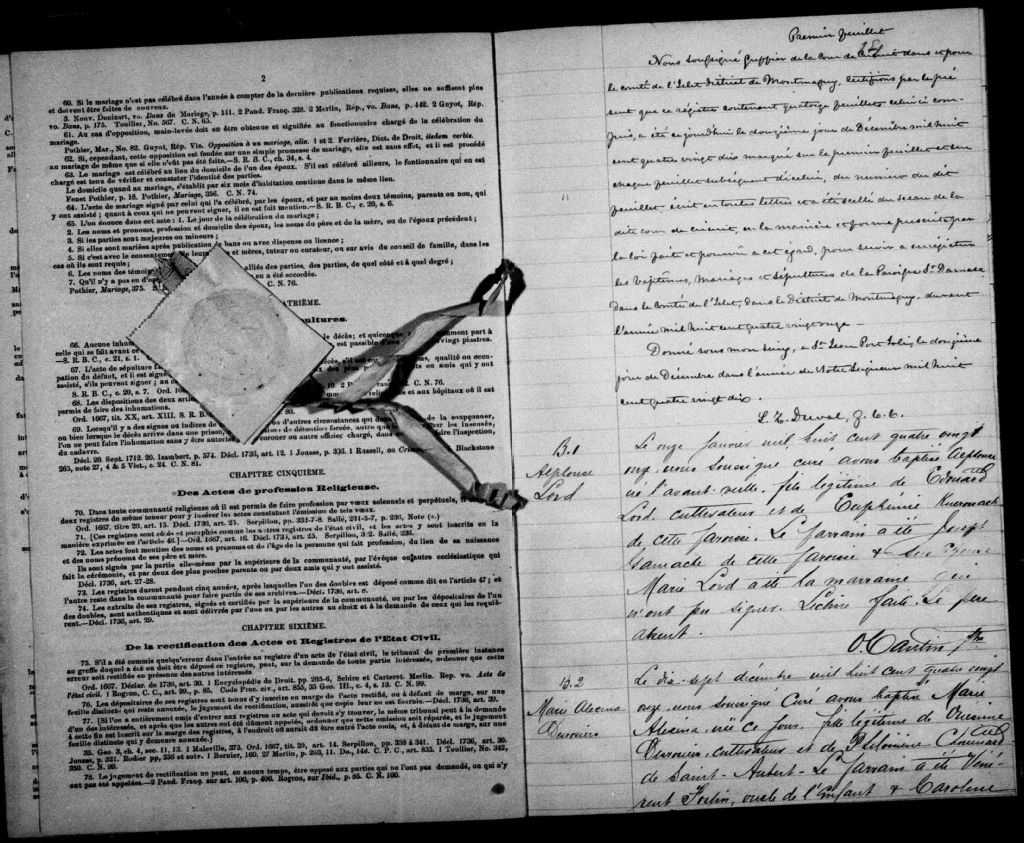 2
60. Si le mariage n'est pas célébré dans l'année à compter de la dernière publications requises, elles ne suffisent plus
et doivent être faites de nouveau.
3. Nouv. Denizart, vo. Bans de Mariage, p. 111. 2 Pand. Franç. 328. 2 Merlin, Rép., vo. Bans, p. 442. 2 Guyot, Rép.
vo. Bans, p. 175. Toullier, No. 567. C. N. 65.
61. Au cas d'opposition, main-levée doit en être obtenue et signifiée au fonctionnaire chargé de la célébration du
mariage.
Pothier, Mar., No. 82. Guyot, Rép. Vis. Opposition à un mariage, alin. 1 et 2. Ferrière, Dict. de Droit, iisdem verbis.
62. Si, cependant, cette opposition est fondée sur une simple promesse de mariage, elle est sans effet, et il est procédé
au mariage de même que si elle n'eût pas été faite.—S. R. B. C., ch. 34, s. 4.
63. Le mariage est célébré au lieu du domicile de l'un des époux. S'il est célébré ailleurs, le fontionnaire qui en est
chargé est tenu de vérifier et constater l'identité des parties.
Le domicile quand au mariage, s'établit par six mois d'habitation continue dans le même lieu.
Fenet Pothier, p. 18. Pothier, Mariage, 356. C. N. 74.
64. L'acte de mariage signé par celui qui l'a célébré, par les époux, et par au moins deux témoins, parents ou non, qui
y ont assisté ; quant à ceux qui ne peuvent signer, il en est fait mention.—S. R. B. C., c. 20, s. 6.
65. L'on énonce dans cet acte : 1. Le jour de la célébration du mariage ;
2. Les noms et pronoms, profession et domicile des époux, les noms du père et de la mère, ou de l'époux précédent ;
3. Si les parties sont majeures ou mineures ;
4. Si elles sont mariées après publication de bans ou avec dispense ou licence ;
5. Si c'est avec le consentement de leurs et mères, tuteur ou curateur, ou sur avis du conseil de famille, dans les
cas où ils sont requis ;
6. Les noms des témoins alliés des parties, des parties, de quel côté et à quel degré ;
7. Qu'il n'y a pas en d'op en a été accordée.
Pothier, Mariage, 375. S. C. N. 76.
ATRIÈME.
ultures.
66. Aucune inhum le décès ; et quiconque
celui qui se fait avant ce vingt piastres.
—S. R. B. C., c. 21, s. 1.
67. L'acte de sépulture qualité ou occu-
pation du défunt, et il est ou amis qui y ont
assisté, s'ils peuvent signer ; au
S. R. B. C., c. 20, s. 7. C. N. 76.
68. Les dispositions des deux artic et aux hôpitaux où il est
permis de faire des inhumations.
Ord. 1667, tit. XX, art. XIII. S. R. B. 80.
69. Lorsqu'il y a des signes ou indices de ou d'autres circonstances qui de la soupçonner,
ou bien lorsque le décès arrive dans une prison, détention forcée,
l'on ne peut faire l'inhumation sans y être autorisé coroner ou autre officier chargé, dans faire l'inspection
du cadavre.
Décl. 20. Sept. 1712. 20. Isambert, p. 574. Décl. 1736, art. 12. 1 Jousse, p. 336. 1 Russell, on Crimes Blackstone
263, note 27, 4 & 5 Vict., c. 24. C. N. 81.
CHAPITRE CINQUIÈME.
Des Actes de profession Religieuse.
70. Dans toute communauté religieuse où il est permis de faire profession par vœux solennels et perpétuels, il
deux registres de même teneur pour y insérer les actes constatant l'émission de tels vœux.
Ord. 1667, titre 20, art. 15. Décl. 1736, art. 25. Serpillon, pp. 332-7-8. Sallé, 241-5-7, p. 236, Note (a.)
71. [Ces registres sont côtés et paraphés les autres registres de l'état civil, et les actes y sont inscrits en la
manière exprimée en l'article 46.] —Ord. 1667, art. 16. Décl. 1736, art. 25. Serpillon, 332. Sallé, 236.
72. Les actes font mention des noms et pronoms et de l'âge de la personne qui fait profession, du lieu de sa naissance
et des noms prénoms de ses père et mère.
Ils sont signés par la partie elle-même par la supérieure de la communauté, par l'évêque ou autre ecclésiastique qui
fait la cérémonie, et par deux des plus proches parents ou par deux amis qui y ont assisté.
Décl. 1736, art. 27-28.
73. Les registres durent pendant cinq années, après lesquelles l'un des doubles est déposé comme dit en l'article 47 ; et
l'autre reste dans la communauté pour faire partie de ses archives.—Décl. 1736, art. 8.
74. Les extraits de ses registres, signés et certifiés par la supérieure de la communauté, ou par les dépositaires de l'un
des doubles, sont authentiques et sont délivrés par l'une ou par les autres au choix et à la demande de ceux qui les requiè-
rent.—Décl. 1736, art. 29.
CHAPITRE SIXIÈME.
De la rectification des Actes et Registres de l'Etat Civil.
75. S'il a été commis quelqu'erreur dans l'entrée au registre d'un acte de l'état civil, le tribunal de première instance
au greffe duquel a été ou doit être déposé ce registre, peut, sur la demande de toute partie intéressée, ordonner que cette
erreur soit rectifiée en présence des autres intéressés
Ord. 1667. Déclar. de 1736, art. 30. 1 Encyclopédie de Droit. pp. 205-6, Sebire et Carteret. Merlin. Rep. vo. Acte de
l'état civil. 1 Rogron, C. C., art. 99, p. 85. Code Proc. civ., art. 855, 35 Geo. III., c. 4, s. 13. C. N. 99.
76. Les dépositaires de ces registres sont tenus d'y inscrire en marge de l'acte rectifié, ou à défaut de marge, sur une
feuille distincte qui reste annexée, le jugement de rectification, aussitôt que copie leur en est fournie.—Décl. 1736, art. 30.
77. [Si l'on a entièrement omis d'entrer aux registres un acte qui devait s'y trouver, le même tribunal peut à la demande
d'un des intéressés, et après que les autres ont été dûment appelés, ordonner que cette omission soit réparée, et le jugement
à cette fin est inscrit sur la marge des registres, à l'endroit où aurait dû être entré l'acte omis, et à défaut de marge, sur une
feuille distincte qui y demeure annexée.]
35. Geo 3, ch. 4, sec. 11, 13. 1 Maleville, 375. Ord. 1667, tit. 20, art. 14. Serpillon, pp. 338 à 341. Décl. 1736, art. 30.
Jousse, p. 321. Rodier pp, 356 et suiv. 1 Bornier, 160. 27 Merlin, p. 263, 11. Do., 148. C. P. C., art. 855. 1 Toullier, No. 342,
350. C. N. 99.
78. Le jugement de rectification ne peut, en aucun temps, être opposé aux parties qui ne l'ont pas demandé, ou qui n'y
ont pas été appelées.—2 Pand. Franç. sur art. 100, p. 496. Rogron, sur Ibid., p. 85. C. N. 100.
Premier feuillet
Nous soussigné Greffier de la Cour de Circuit dans et pour
le comté de l'Islet district de Montmagny, certifions par le pré
sent que ce régistre contenant quatorze feuillets celui-ci com-
pris, a été aujourdhui le douzième jour de Décembre mil huit
cent quatre vingt dix marqué sur le premier feuillet et sur
chaque feuillet subséquent d'icelui, du numéro du dit
feuillet écrit en toutes lettres et a été scellé du sceau de la
dite cour de circuit, en la manière et forme prescrite par
la loi faite et pourvue à cet égard, pour servir à enregistrer
les baptêmes, Mariages et Sépultures de la Paroisse St Damase
dans le Comté de l'Islet, dans le District de Montmagny, durant
l'année mil huit cent quatre vingt onze —
Donné sous mon seing, à St Jean Port Joli, le douzième
jour de Décembre dans l'année de Notre Seigneur mil huit
cent quatre vingt dix.
L. Z. Duval, g. c. c.
B. 1
Alphonse
Lord
Le onze Janvier mil huit cent quatre vingt
onze, nous soussigné curé avons baptisé Alphonse
né l'avant-veille, fils légitime de Edouard
Lord, cultivateur et de Euphémie
de cette paroisse. Le parrain a été Joseph
Gamache de cette paroisse & Son Epouse
Marie Lord a été la marraine qui
n'ont pu signer. Lecture faite. Le père
absent.
O. Cantin Ptre
B. 2
Marie Alexina
Desrosiers
Le dix-sept décembre mil huit cent quatre vingt
onze, nous soussigné Curé avons baptisé Marie
Alexina, née ce jour, fille légitime de Onésime
Desrosiers, cultivateur et de Philomène Chouinard
de Saint-Aubert. Le parrain a été Véné-
rent Fortin, oncle de l'enfant & Caroline